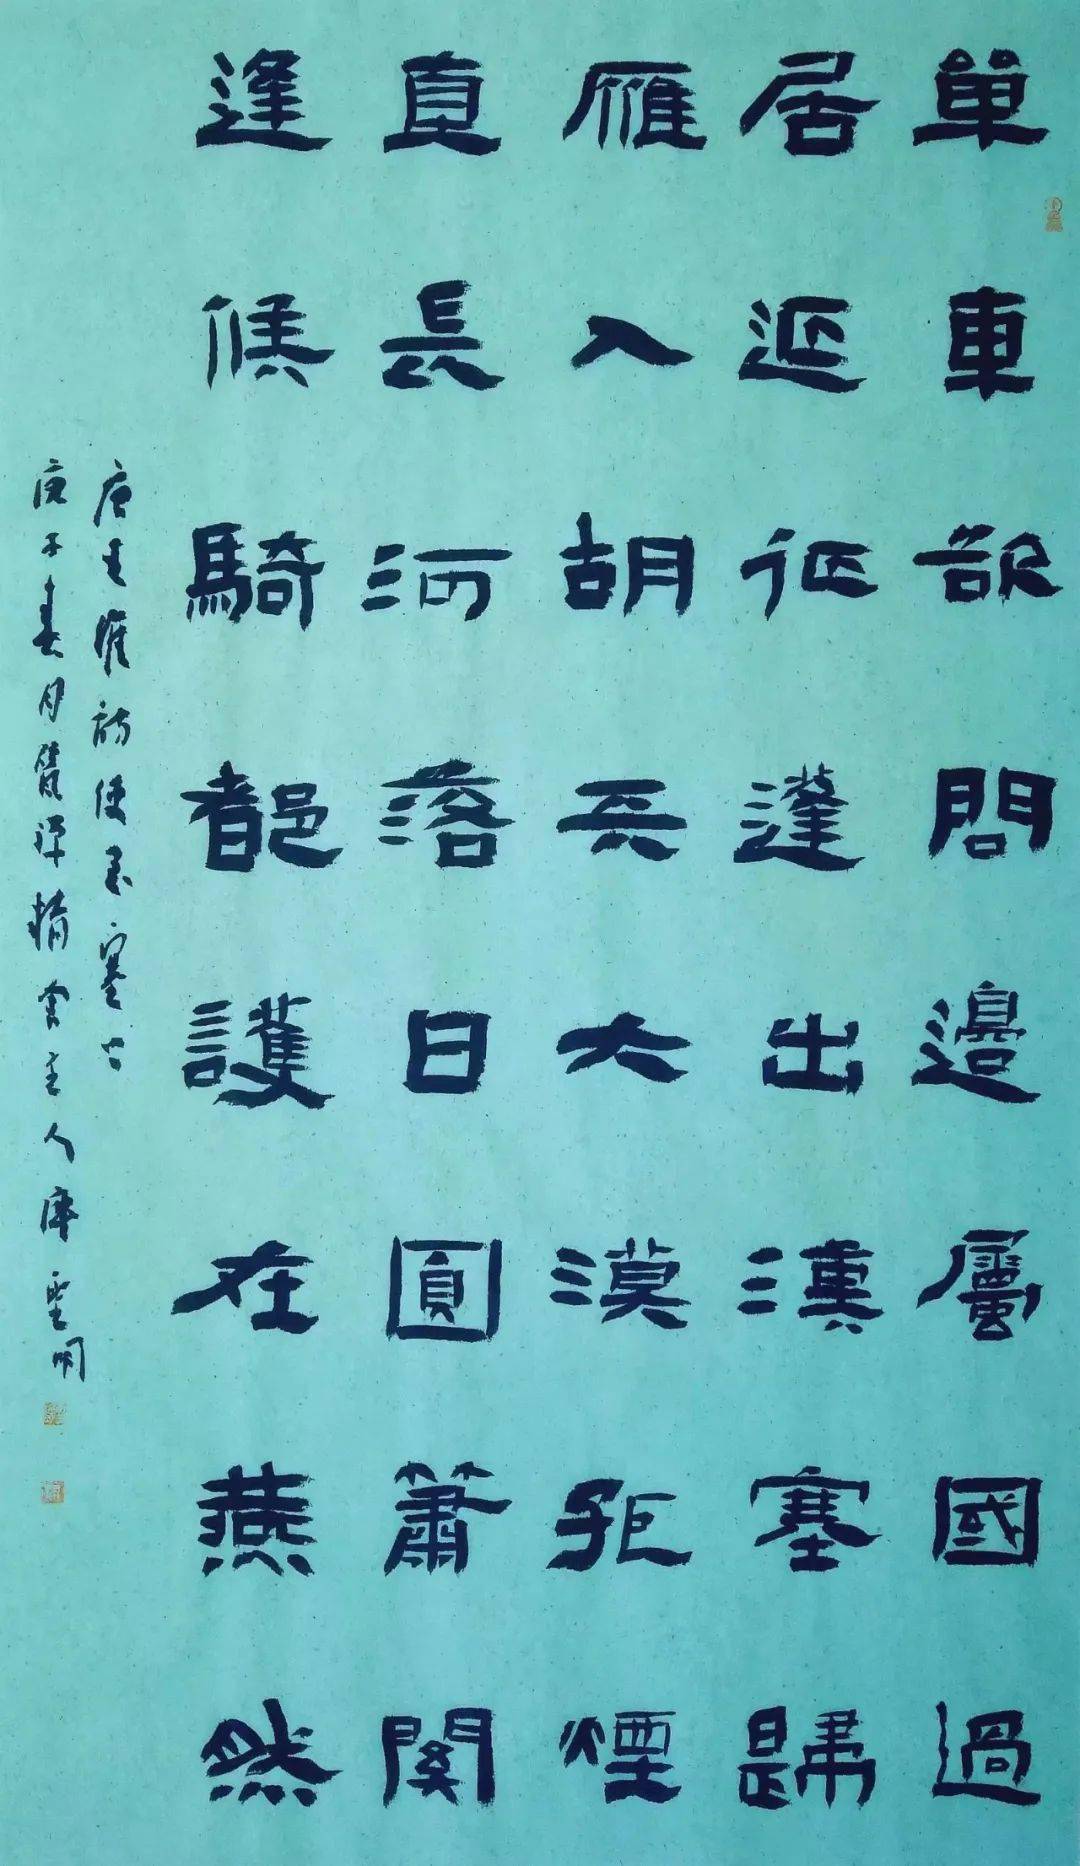 單車欲問邊屬國過
居延征蓬出漢塞歸
雁入胡天大漠孤煙
直長河落日圓簫關
逢候騎都護在燕然
唐王維詩使至塞上
庚子春月精舍主人聖明